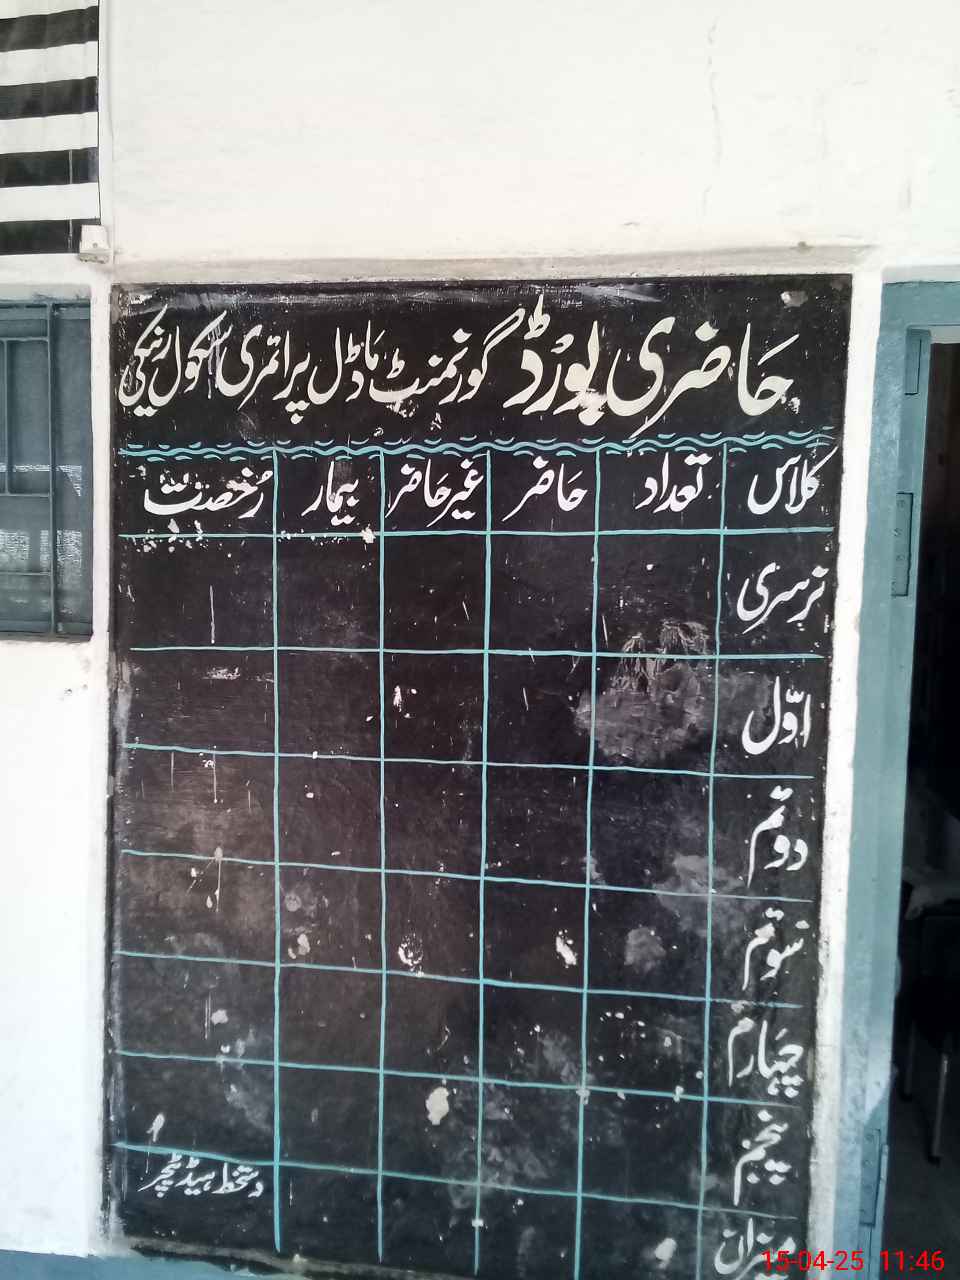 حاضری بورڈ گورنمنٹ ماڈل پرائمری سکول رنیکی
کلاس تعداد حاضر غیر حاضر بیمار رخصت
نرسری
اوّل
دوئم
سوئم
چہارم
پنجم
دستخط ہیڈ ٹیچر
میزان
15-04-25 11:46